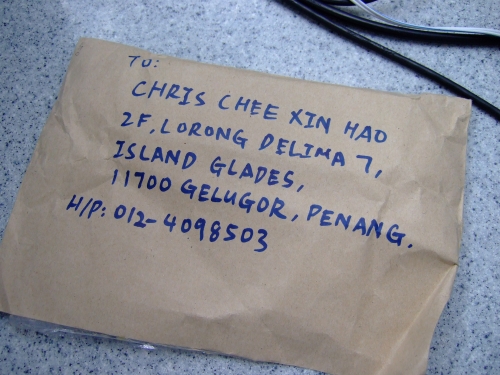 TO:
CHRIS CHEE XIN HAO
2F, LORONG DELIMA 7,
ISLAND GLADES,
11700 GELUGOR, PENANG.
H/P: 012-4098503